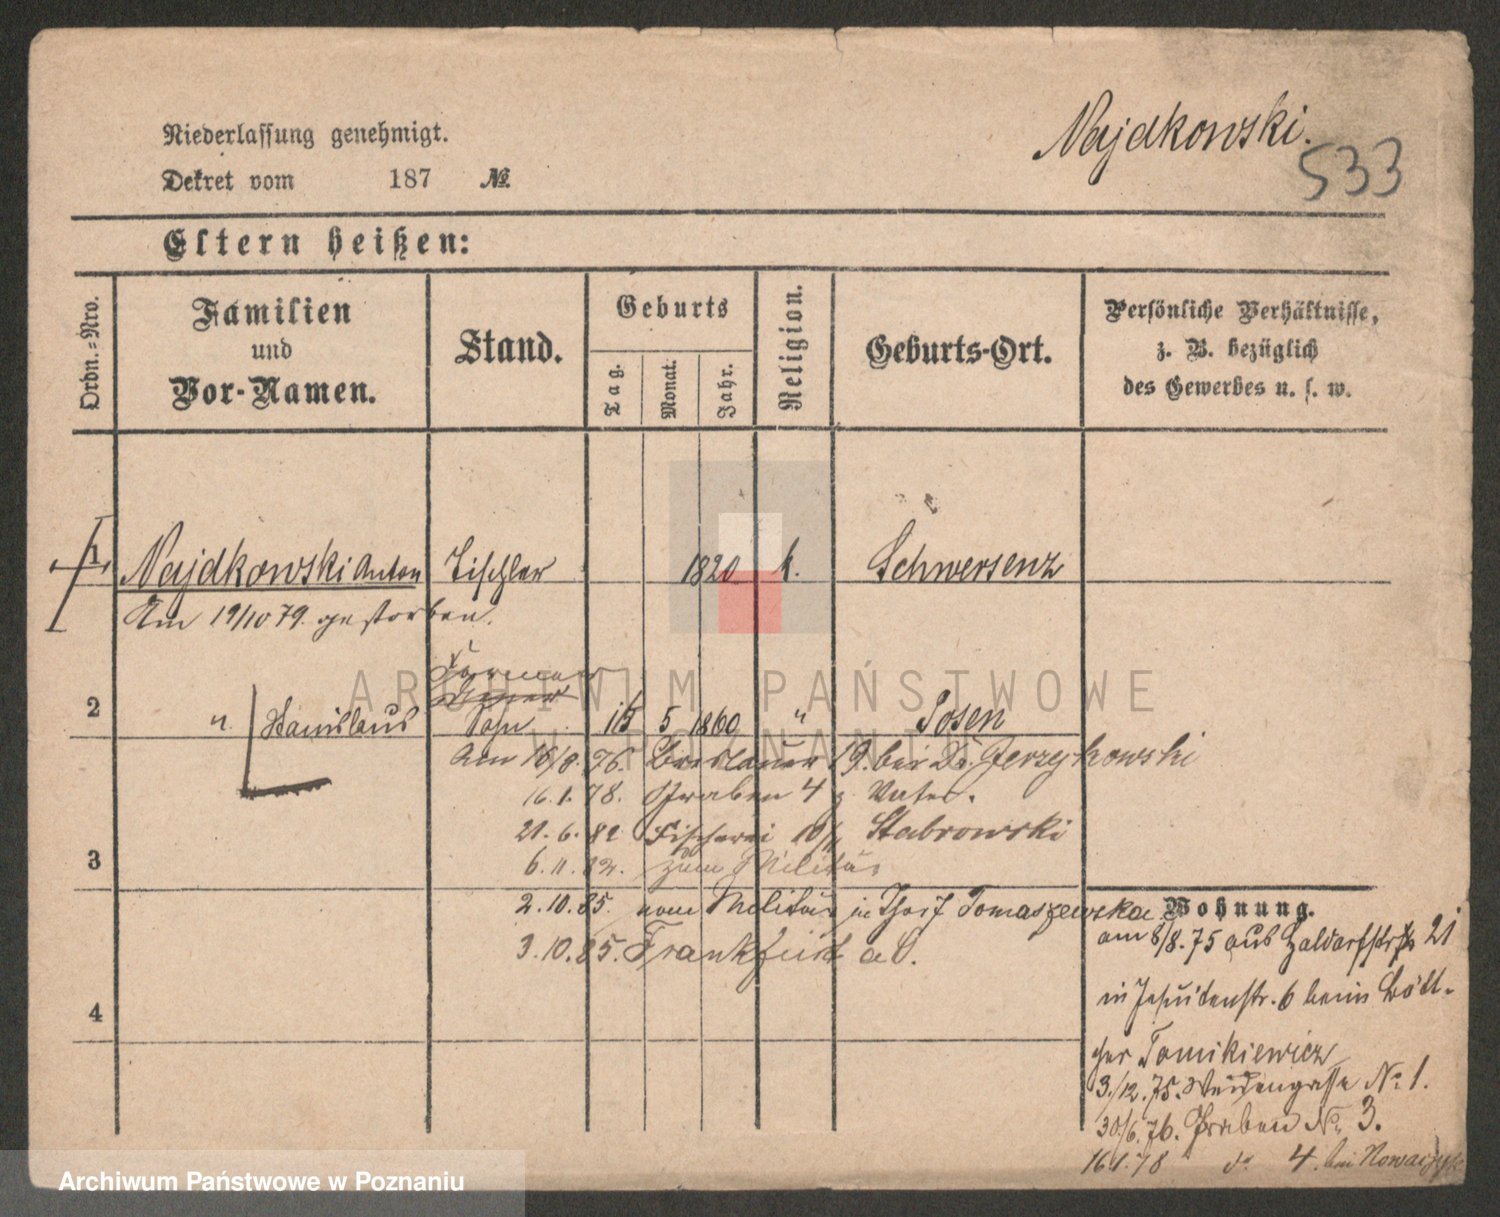 Najdkowski.
533
Niederlassung genehmigt.
Dekret vom 187 №
Eltern heißen:
Ordn.-Nro.
Familien
und
Vor-Namen.
Stand.
Geburts
Tag.
Monat.
Jahr.
Religion.
Geburts-Ort.
Persönliche Verhältnisse,
z. B. bezüglich
des Gewerbes u. s. w.
1 Najdkowski Anton Tischler 1820 k. Schwersenz
Am 19/10 79. gestorben.
2 " Stanislaus Sohn 15 5 1860 " Posen
Am 18/8. 76. Breslauer 19. bei Dr. Jerzykowski
16.1.78. Graben 4 z Vater.
21.6.82 Fischerei 10/11 Stabrowski
3
6.11.82. zum Militär
2.10.85. vom Militär in Tomaszewska
3.10.85. Frankfurt a O.
4
Wohnung.
am 8/8.75 aus 21
in Jesuitenstr. 6 beim Bött-
cher Tomikiewicz
3/12.75. Weidengasse No 1.
30/6.76. Graben No. 3.
16.1.78 do 4. bei
ARCHIWUM PAŃSTWOWE
W POZNANIU
Archiwum Państwowe w Poznaniu